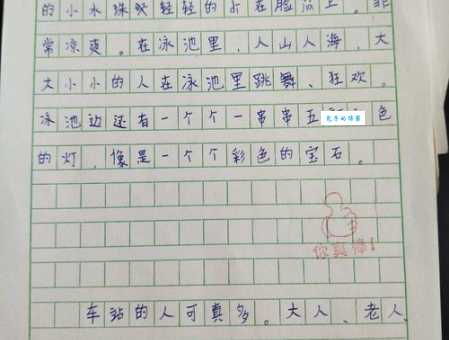 的小水珠轻轻的打在脸上。非
常凉爽。在泳池里,人山人海,大
大小小的人在泳池里跳舞、狂欢。
泳池边还有一个个一串串五色
的灯,像是一个个彩色的宝石。
你真棒!
车站的人可真多。大人、老人、